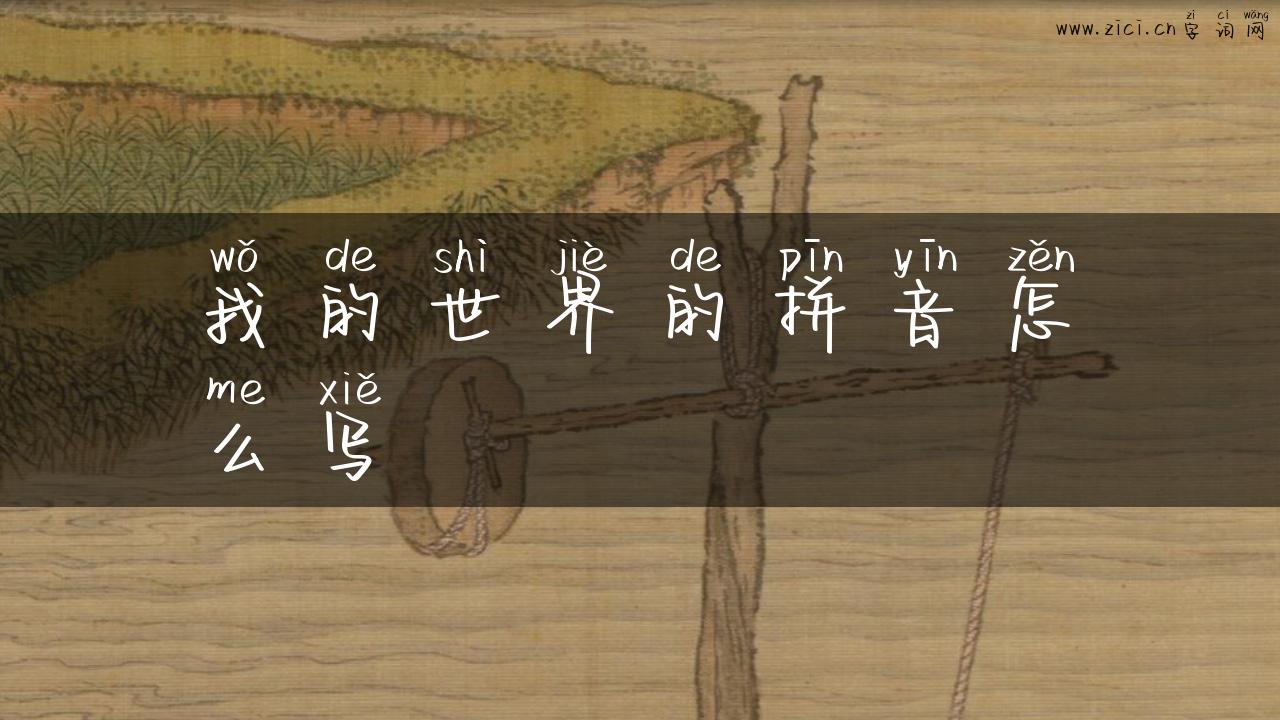 zì cí wǎng
www.zici.cn 字词网
wǒ de shì jiè de pīn yīn zěn
我的世界的拼音怎
me xiě
么写